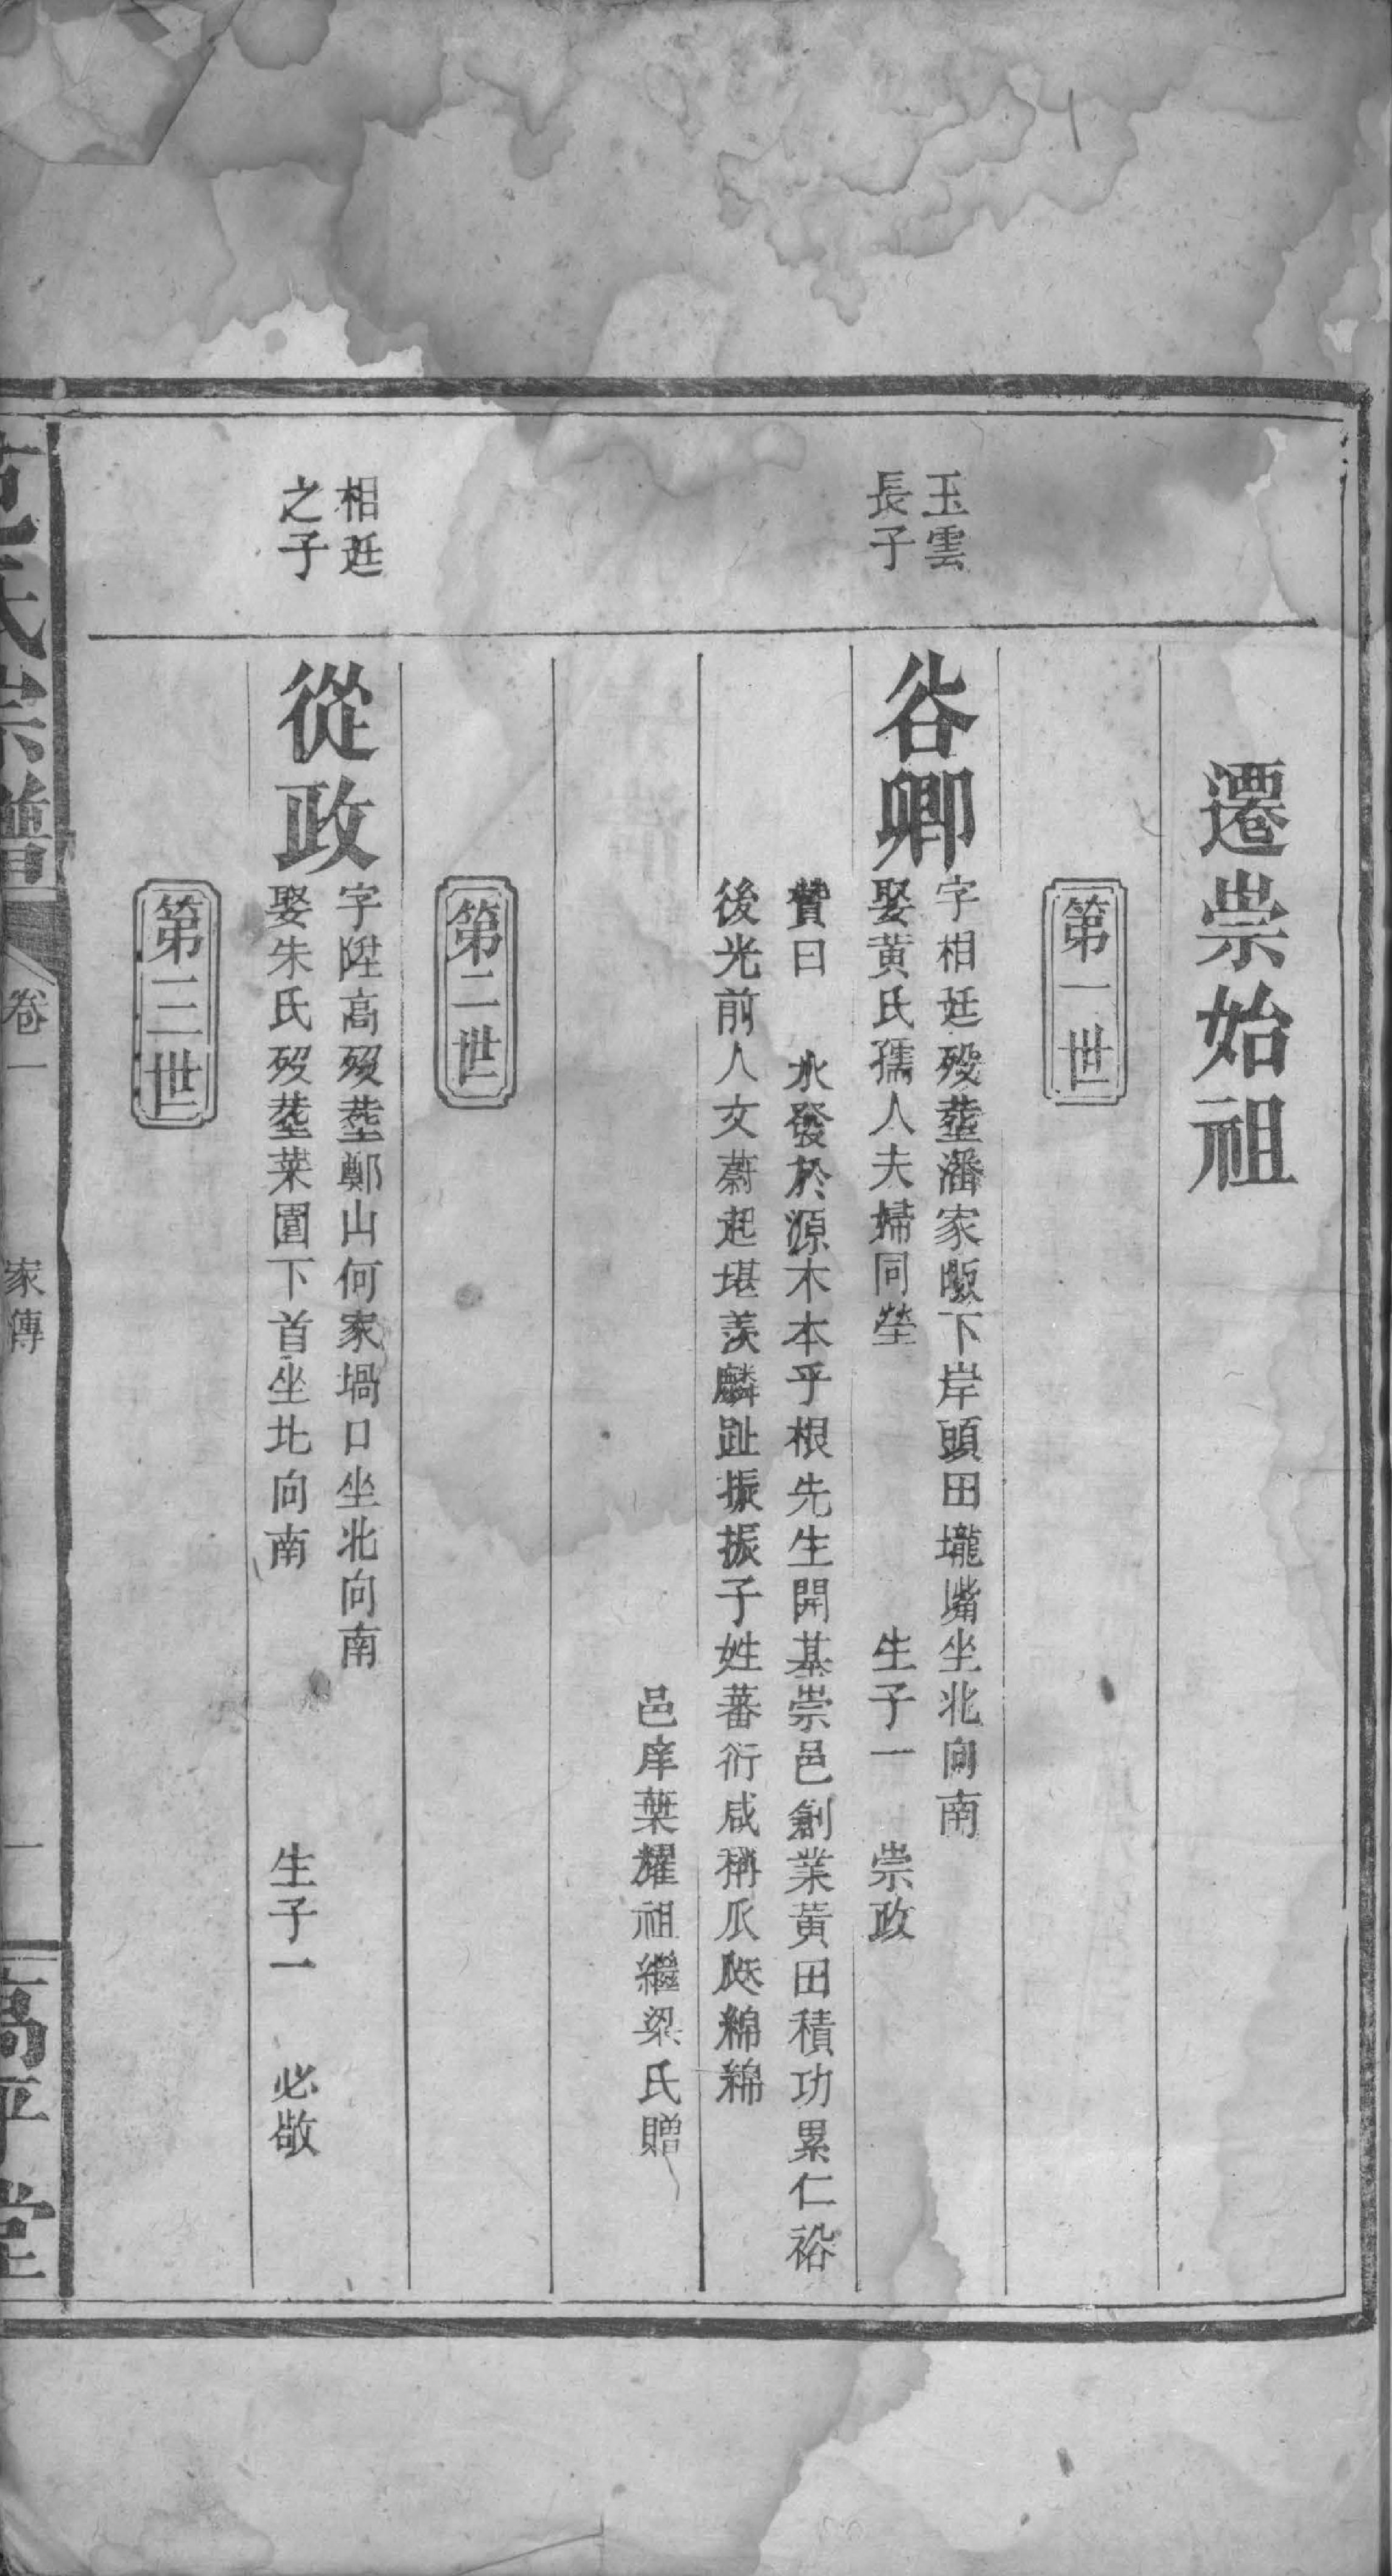 遷崇始祖
第一世
玉雲
長子
谷卿
字相廷歿塟潘家畈下岸頭田壠嘴坐北向南
娶黄氏孺人夫婦同塋　生子一　崇政
贊曰　水發於源木本乎根先生開基崇邑創業黄田積功累仁裕
後光前人文蔚起堪羨麟趾振振子姓蕃衍咸稱瓜瓞綿綿
邑庠葉耀祖繼梁氏贈
第二世
相廷
之子
從政
字陞高歿塟鄭山何家堝口坐北向南
娶朱氏歿塟菜園下首坐北向南　生子一　必敬
第三世
范氏宗譜　卷一　家傳　一　高平堂